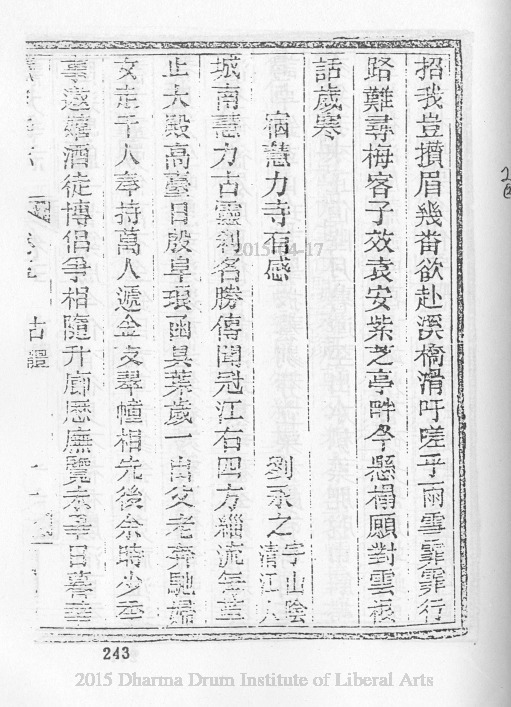 招我豈攢眉幾畨欲赴溪橋滑吁嗟乎雨雪霏霏行
路難尋梅客子效袁安紫芝亭畔今懸榻願對雲液
話歲寒
宿慧力寺有感 劉永之 字山陰 清江人
城南慧力古靈刹名勝傳聞冠江右四方緇流
止大殿高臺日殷阜琅函具葉歲一出父老奔馳婦
女走千人奉持萬人遞金支翠幢相先後余時少
事遨嬉酒徒博侶爭相隨升廊歷廡覽未畢日暮
古蹟
243
2015-04-17
2015 Dharma Drum Institute of Liberal Arts